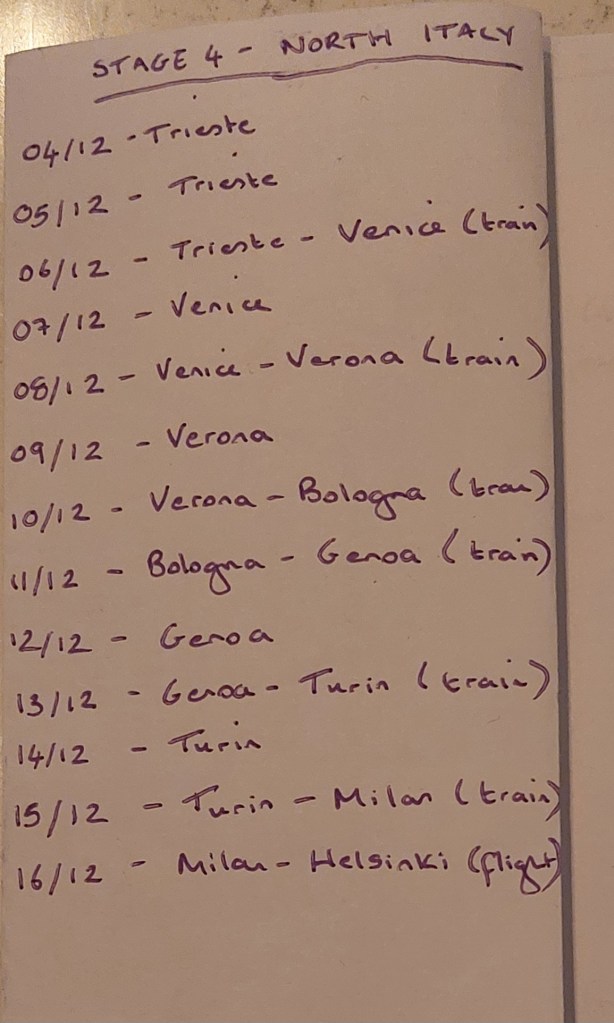 STAGE 4 - NORTH ITALY
04/12 - Trieste
05/12 - Trieste
06/12 - Trieste - Venice (train)
07/12 - Venice
08/12 - Venice - Verona (train)
09/12 - Verona
10/12 - Verona - Bologna (train)
11/12 - Bologna - Genoa (train)
12/12 - Genoa
13/12 - Genoa - Turin (train)
14/12 - Turin
15/12 - Turin - Milan (train)
16/12 - Milan - Helsinki (flight)